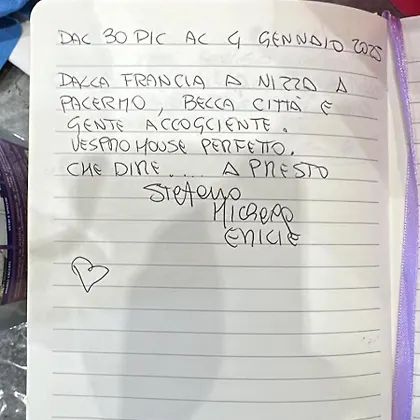 DAL 30 DIC AL 4 GENNAIO 2025
DALLA FRANCIA A NIZZA A
PALERMO, BELLA CITTÀ E
GENTE ACCOGLIENTE.
VESPRO HOUSE PERFETTO.
CHE DIRE.... A PRESTO
STEFANO